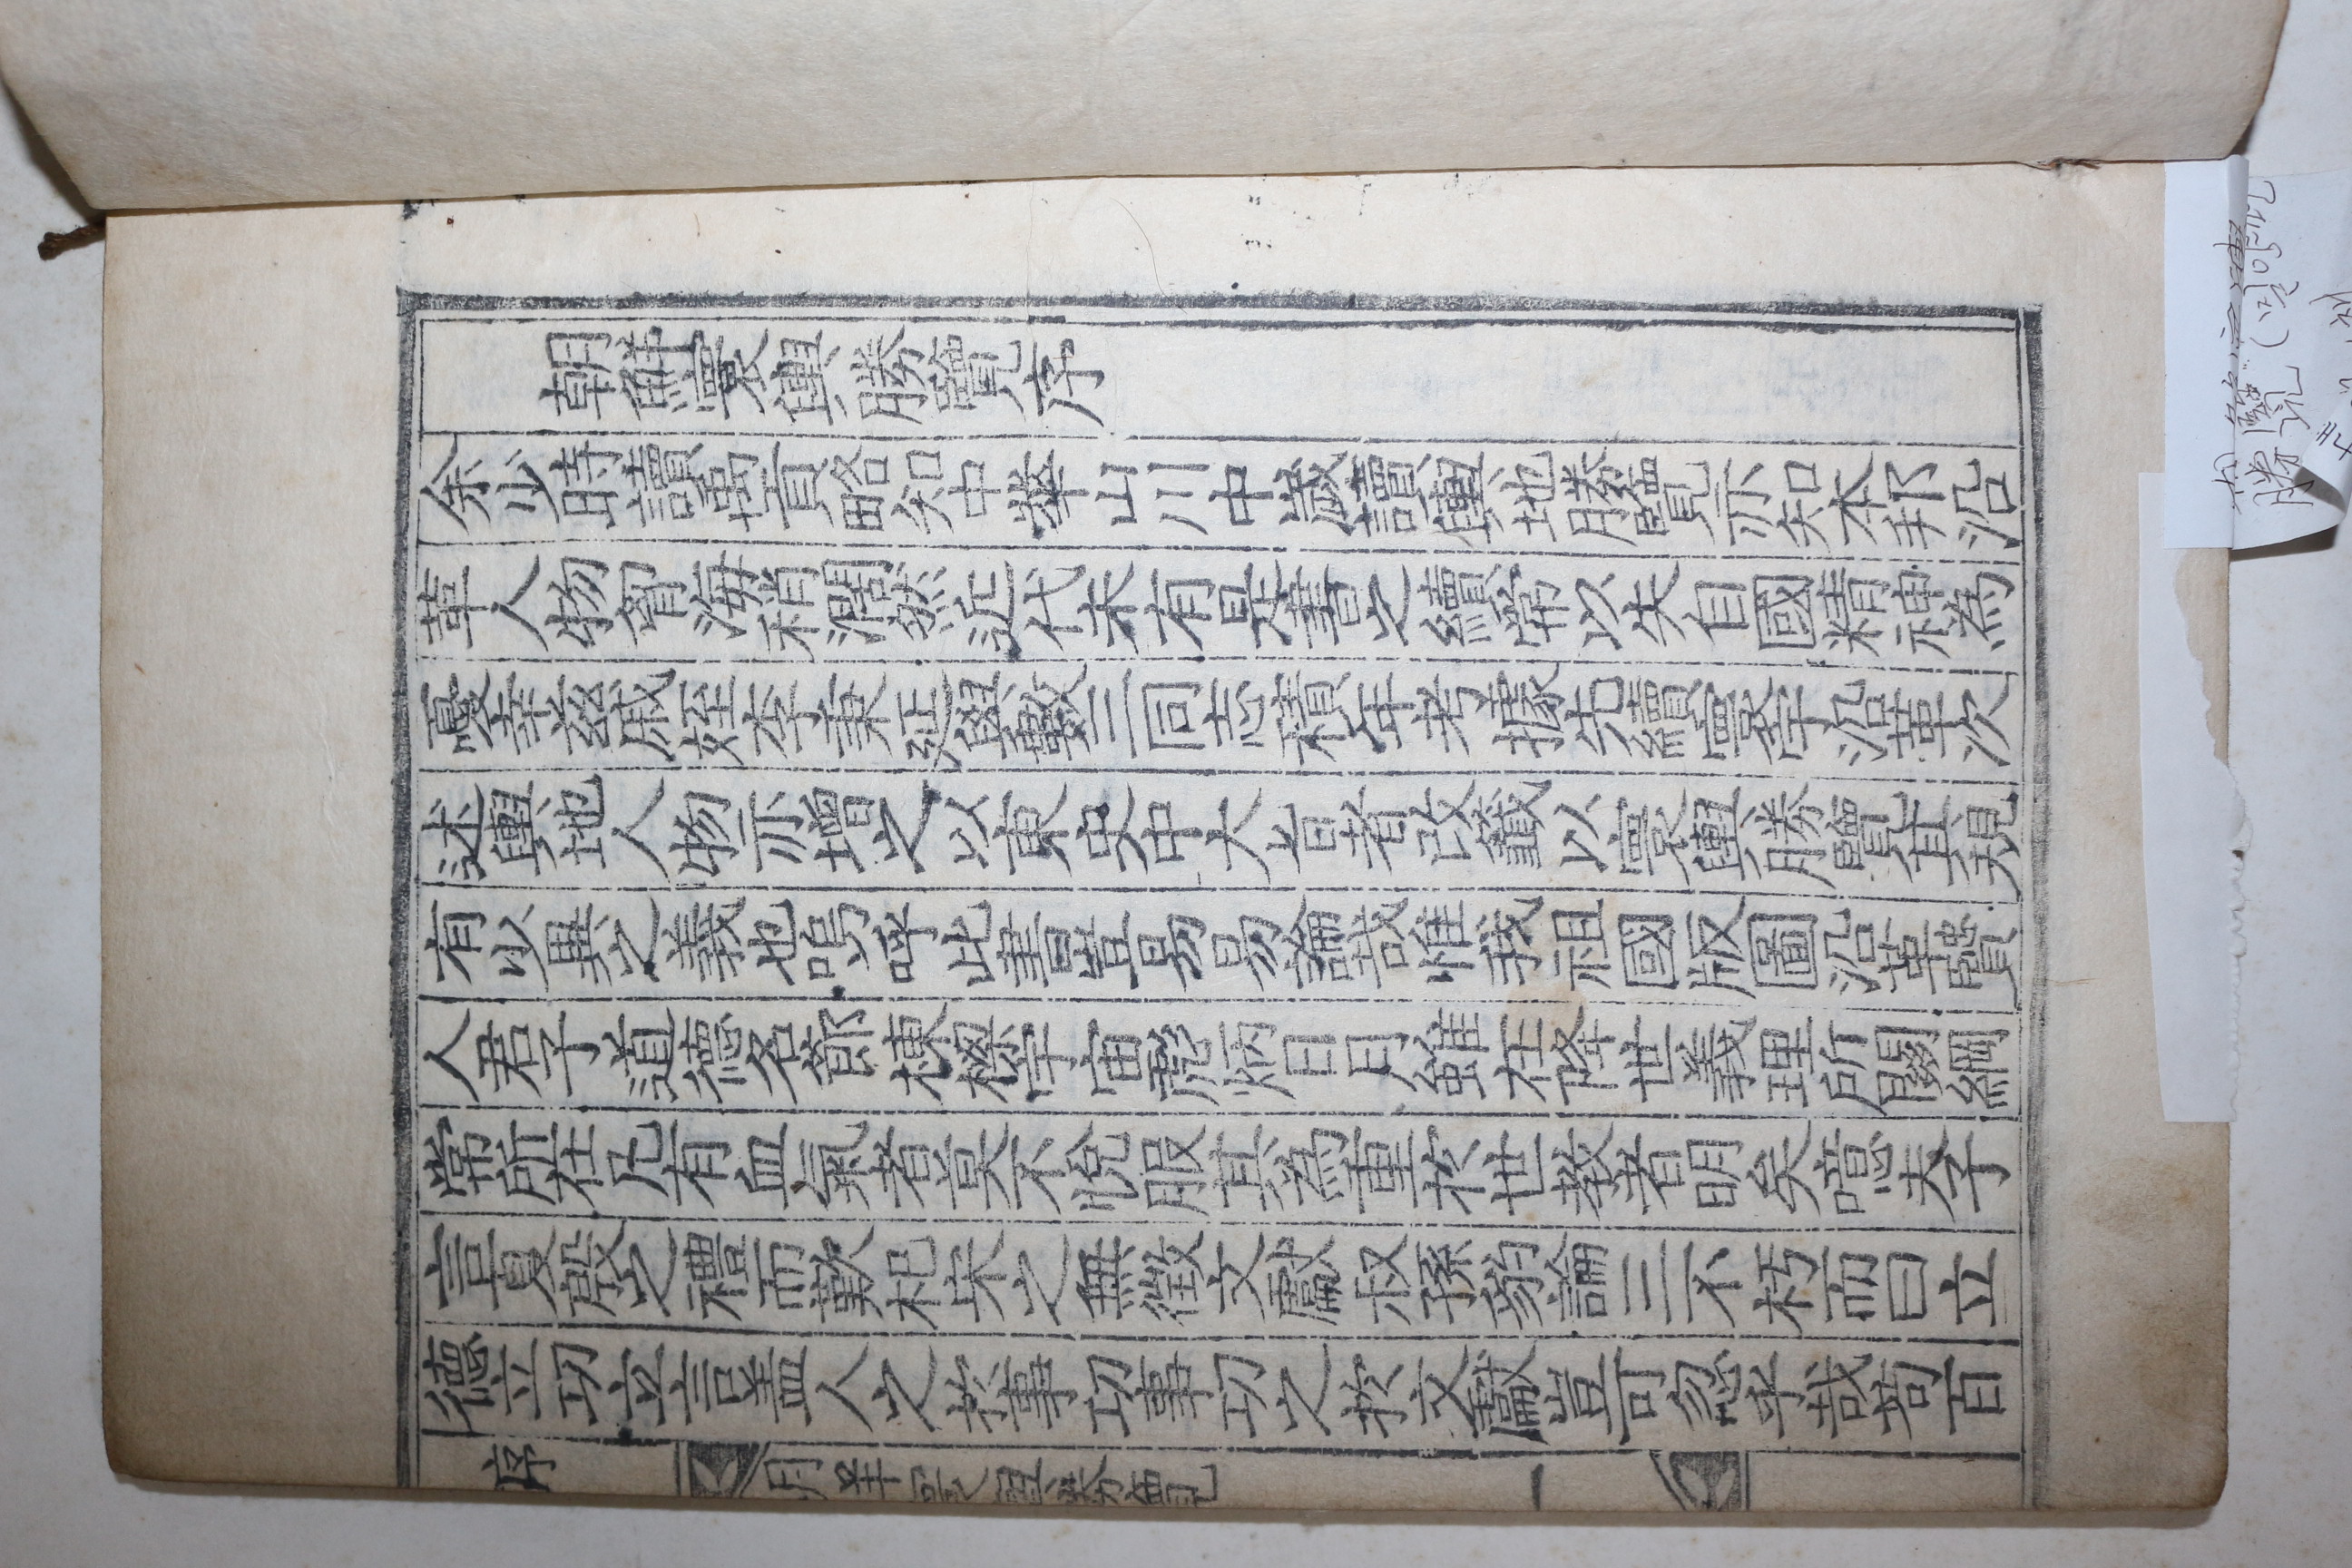 朝鮮寰輿勝覽序
余少時讀禹貢略知中華山川中歲讀輿地勝覽亦知本邦沿
革人物胷海稍濶然近代未有是書之續常以失自國精神為
憂幸玆戚姪李秉延與數三同志積年考據先續寰宇沿革次
述輿地人物亦增之以東史中大旨者改籤以寰輿勝覽其規
有少異之義也嗚呼此書豈易易論哉惟我祖國版圖沿革賢
人君子道德名節棟樑宇宙彪炳日月雖在降世義理所關綱
常所在凡有血氣者莫不悅服其為重於世教者明矣噫夫子
言夏殷之禮而歎杞宋之無徵文獻叔孫豹論三不朽而曰立
德立功立言盖人之於事功事功之於文獻豈可忽乎哉苟百
序
一
勝覽(밀양편